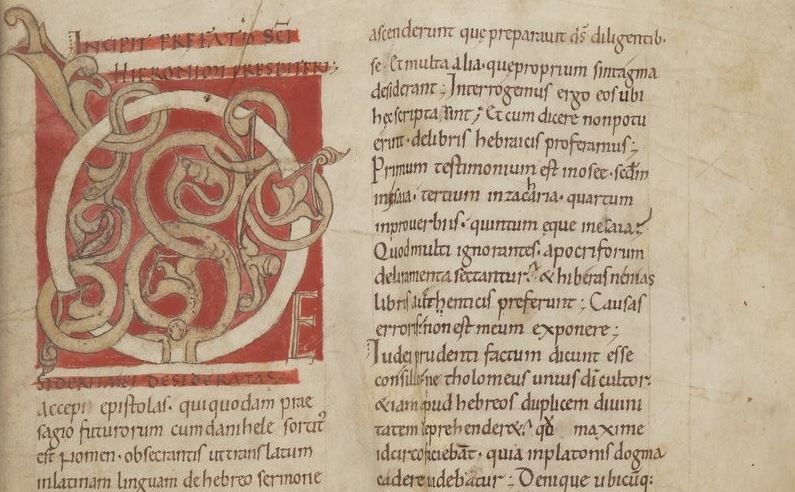 INCIPIT PREFATIO SC̄I
HIERONIMI PRESBITERI;
DE
SIDERII MEI DESIDERATAS
accepi epistolas. qui quodam prae
sagio futurorum cum danihele sortit᾽
est nomen. obsecrantis ut translatum
in latinam linguam de hebreo sermone
ascenderunt que preparauit d̄s diligentib·
se. Et multa alia. que proprium sintagma
desiderant; Interrogemus ergo eos ubi
hec scripta sint; Et cum dicere non potu
erint. de libris hebraicis proferamus;
Primum testimonium est in osee. sc̄dm
in esaia. tertium in zacharia. quartum
in prouerbiis. quintum eque in esaia;
Quod multi ignorantes. apocriforum
deliramenta sectantur. & hiberas nenias
libris authenticis preferunt; Causas
erroris non est meum exponere;
Iudei prudenti factum dicunt esse
consilio ne tholomeus unius dī cultor·
& iam apud hebreos duplicem diuini
tatem reprehenderet. qđ maxime
idcirco faciebat̄. quia in platonis dogma
cadere uidebatur; Denique ubicūq: